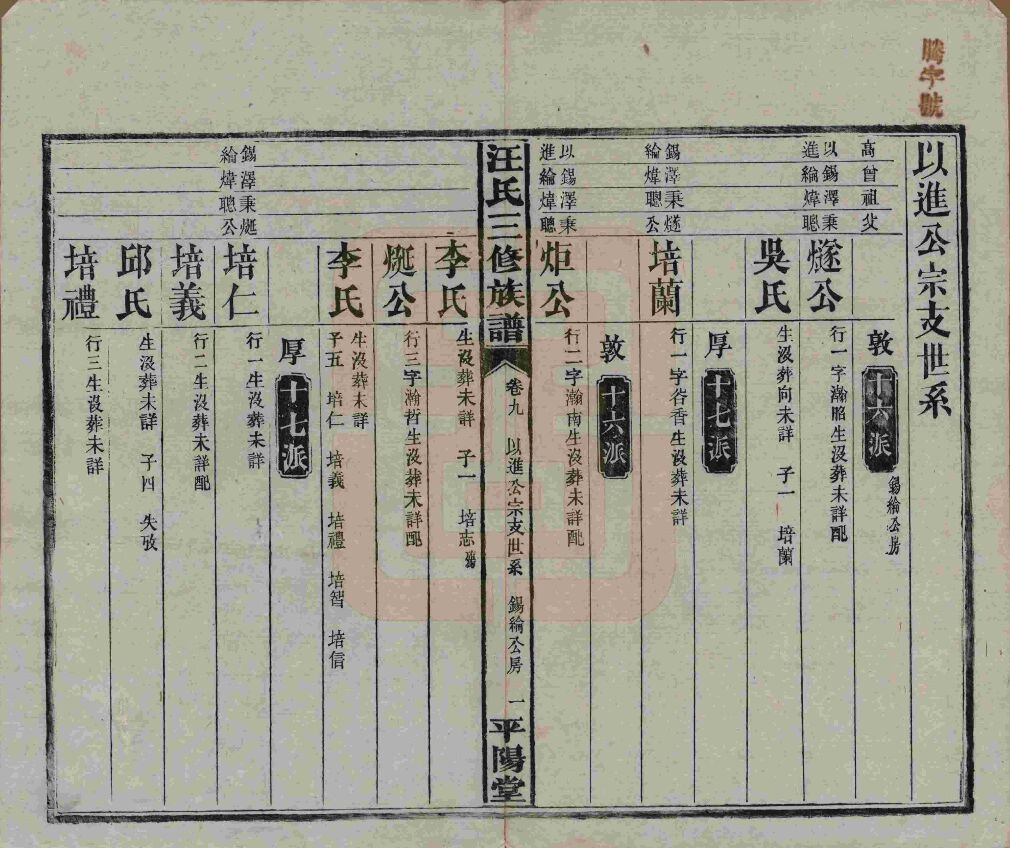 騰字號
以進公宗支世系
高曾祖父
敦 十六派 錫綸公房
以錫澤秉
進綸煒聰
燧公 行一字瀚昭生沒葬未詳配
吳氏 生沒葬向未詳 子一 培蘭
厚 十七派
錫澤秉燧
綸煒聰公
培蘭 行一字谷香生沒葬未詳
敦 十六派
以錫澤秉
進綸煒聰
炬公 行二字瀚南生沒葬未詳配
汪氏三修族譜 卷九 以進公宗支世系 錫綸公房 一 平陽堂
李氏 生沒葬未詳 子一 培志 殤
烻公 行三字瀚哲生沒葬未詳配
李氏 生沒葬未詳
子五 培仁 培義 培禮 培智 培信
厚 十七派
錫澤秉烻
綸煒聰公
培仁 行一生沒葬未詳
培義 行二生沒葬未詳配
邱氏 生沒葬未詳 子四 失攷
培禮 行三生沒葬未詳